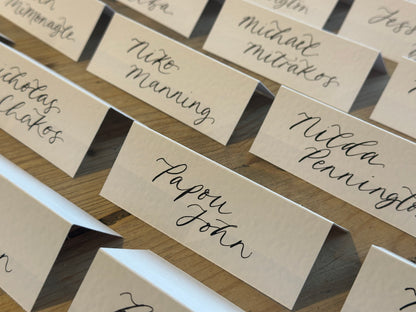 McMonagle
Niko
Manning
Michael
Mitrakos
Nicholas
Chakos
Nilda
Pennington
Papou
John